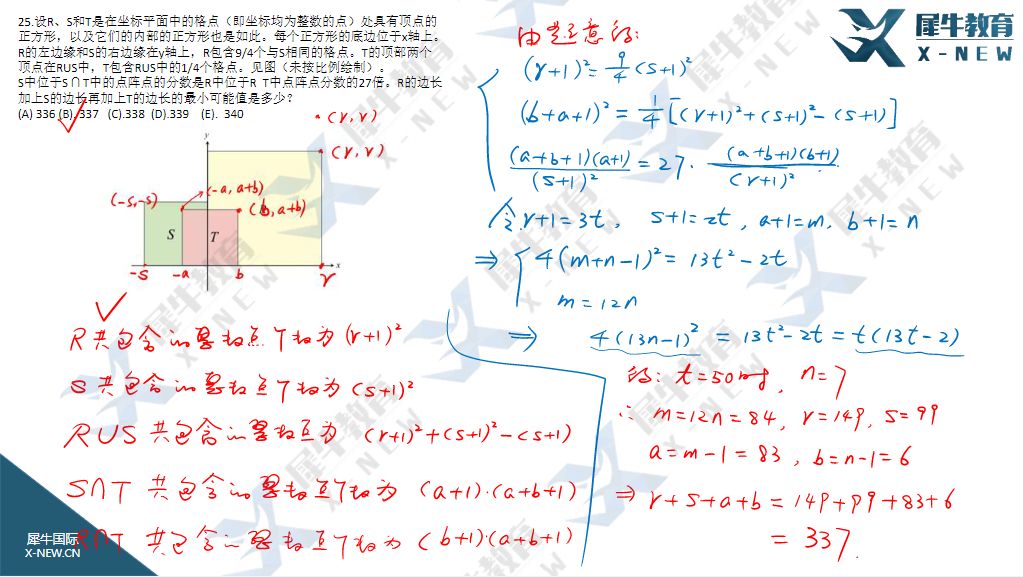 25.设R、S和T是在坐标平面中的格点（即坐标均为整数的点）处具有顶点的
正方形，以及它们的内部的正方形也是如此。每个正方形的底边位于x轴上。
R的左边缘和S的右边缘在y轴上，R包含9/4个与S相同的格点。T的顶部两个
顶点在RUS中，T包含RUS中的1/4个格点。见图（未按比例绘制）。
S中位于S∩T中的点阵点的分数是R中位于R T中点阵点分数的27倍。R的边长
加上S的边长再加上T的边长的最小可能值是多少?
(A) 336 (B). 337 (C).338 (D).339 (E). 340
犀牛教育
X-NEW
由题意得:
(r+1)²=9/4(s+1)²
(b+a+1)²=1/4[(r+1)²+(s+1)²-(s+1)]
(a+b+1)(a+1)/(s+1)²=27·(a+b+1)(b+1)/(r+1)²
令r+1=3t, s+1=2t, a+1=m. b+1=n
⇒ 4(m+n-1)²=13t²-2t
m=12n
⇒ 4(13n-1)²=13t²-2t=t(13t-2)
得: t=50时, n=7
∴ m=12n=84, r=149, s=99
a=m-1=83, b=n-1=6
⇒ r+s+a+b=149+99+83+6
=337.
(r,r)
(r,r)
y
(-s,-s)
(-a,a+b)
(b,a+b)
S
T
x
-s
-a
b
r
R共包含的整数点个数为(r+1)²
S共包含的整数点个数为(s+1)²
RUS共包含的整数点为(r+1)²+(s+1)²-(s+1)
S∩T共包含的整数点个数为(a+1)·(a+b+1)
R∩T共包含的整数点个数为(b+1)·(a+b+1)
犀牛国际
X-NEW.CN
犀牛教育
X-NEW